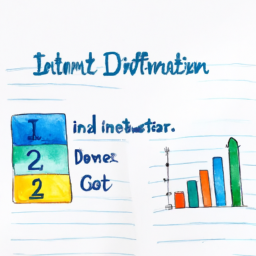 Intamt Diffimatien
I ind inetustar.
2 Dones
2 Cot